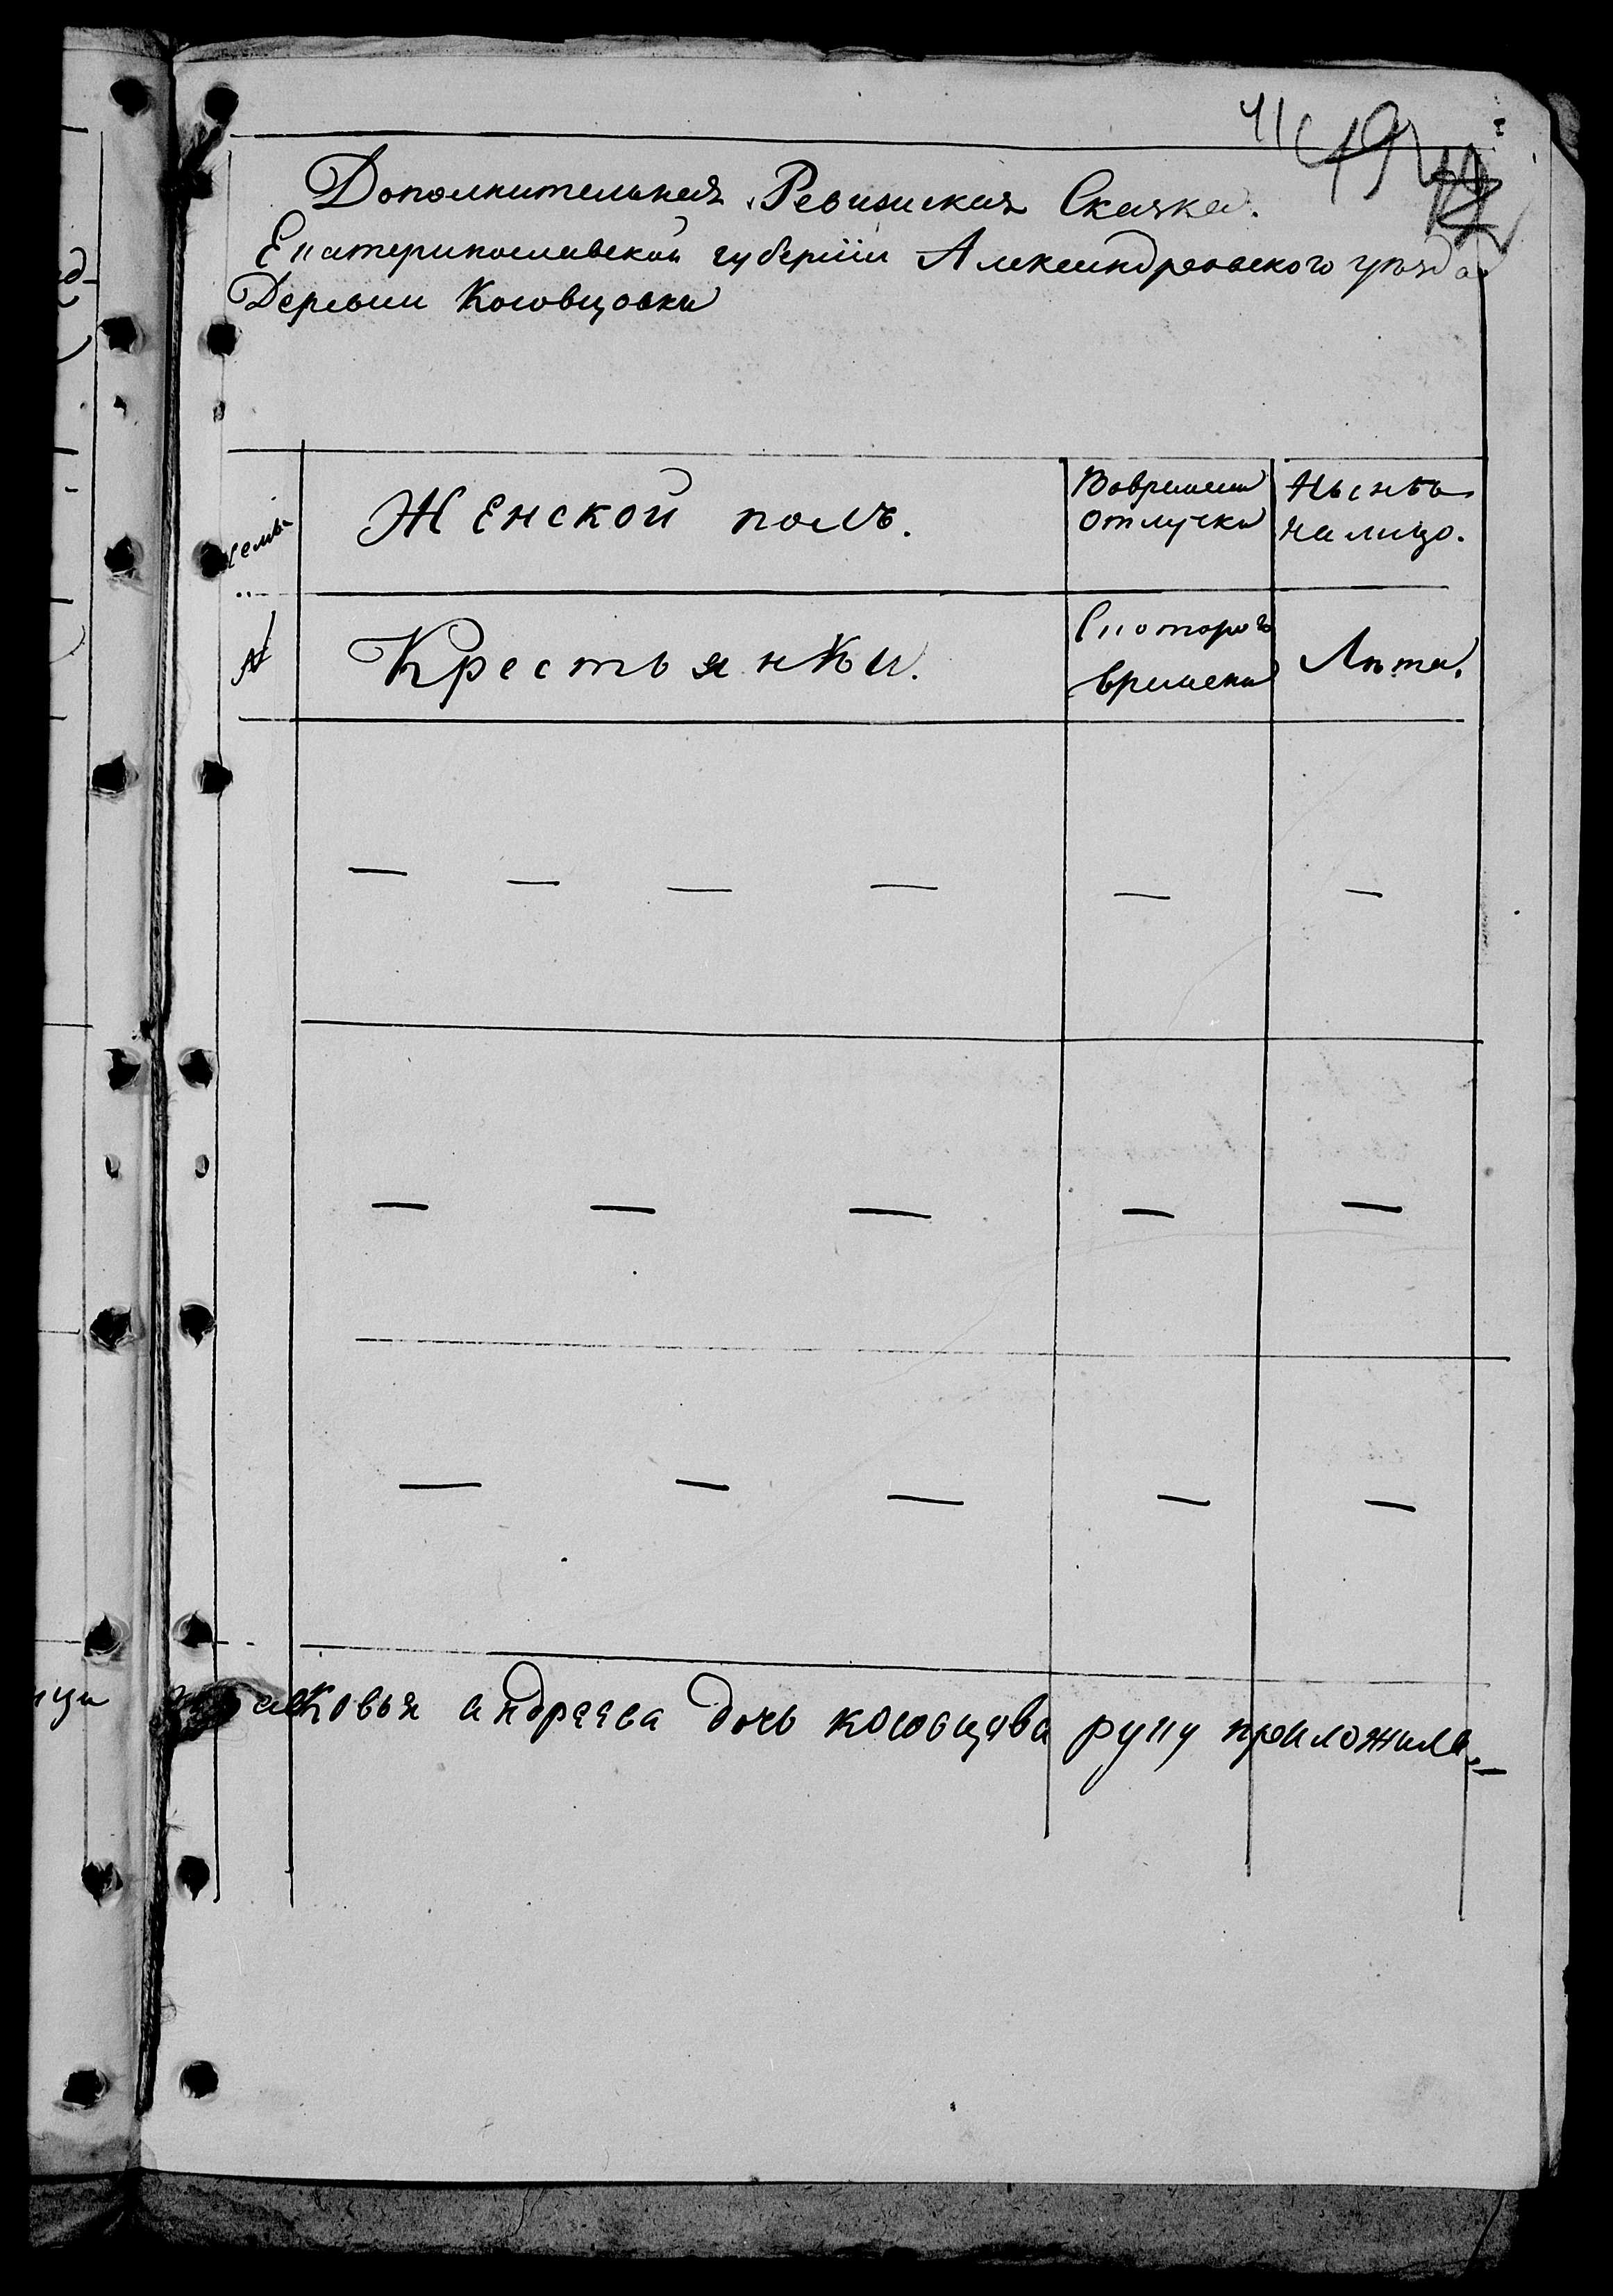 41 49
Дополнительная Ревизиская Сказка.
Екатеринославской губернiи Александровского уѣзда
Деревни Косовцовки
семьи
Женской полъ.
Вовремени
отлучки
Нынѣ
налицо.
№
Крестьянки.
Скоторого
времени
Лѣта.
— — — — — —
— — — — —
— — — — —
андреева дочь косовцова руку приложила. —